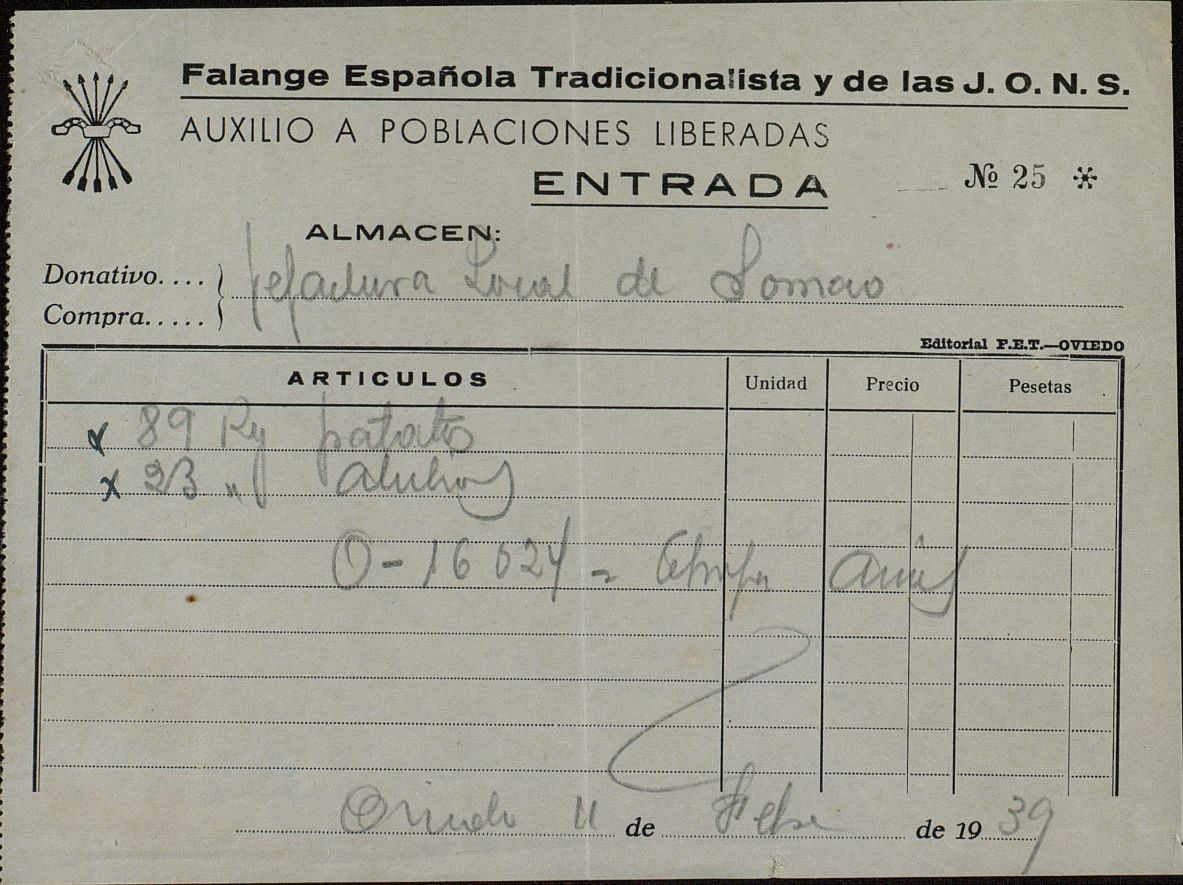 Falange Española Tradicionalista y de las J. O. N. S.
AUXILIO A POBLACIONES LIBERADAS
ENTRADA
№ 25 *
ALMACEN:
Donativo....
Jefactura Local de Somao
Compra.....
Editorial F.E.T.—OVIEDO
ARTICULOS Unidad Precio Pesetas
x 89 Kg patatas
x 23 "
O-16024 =
Oviedo 11 de Febr de 1939